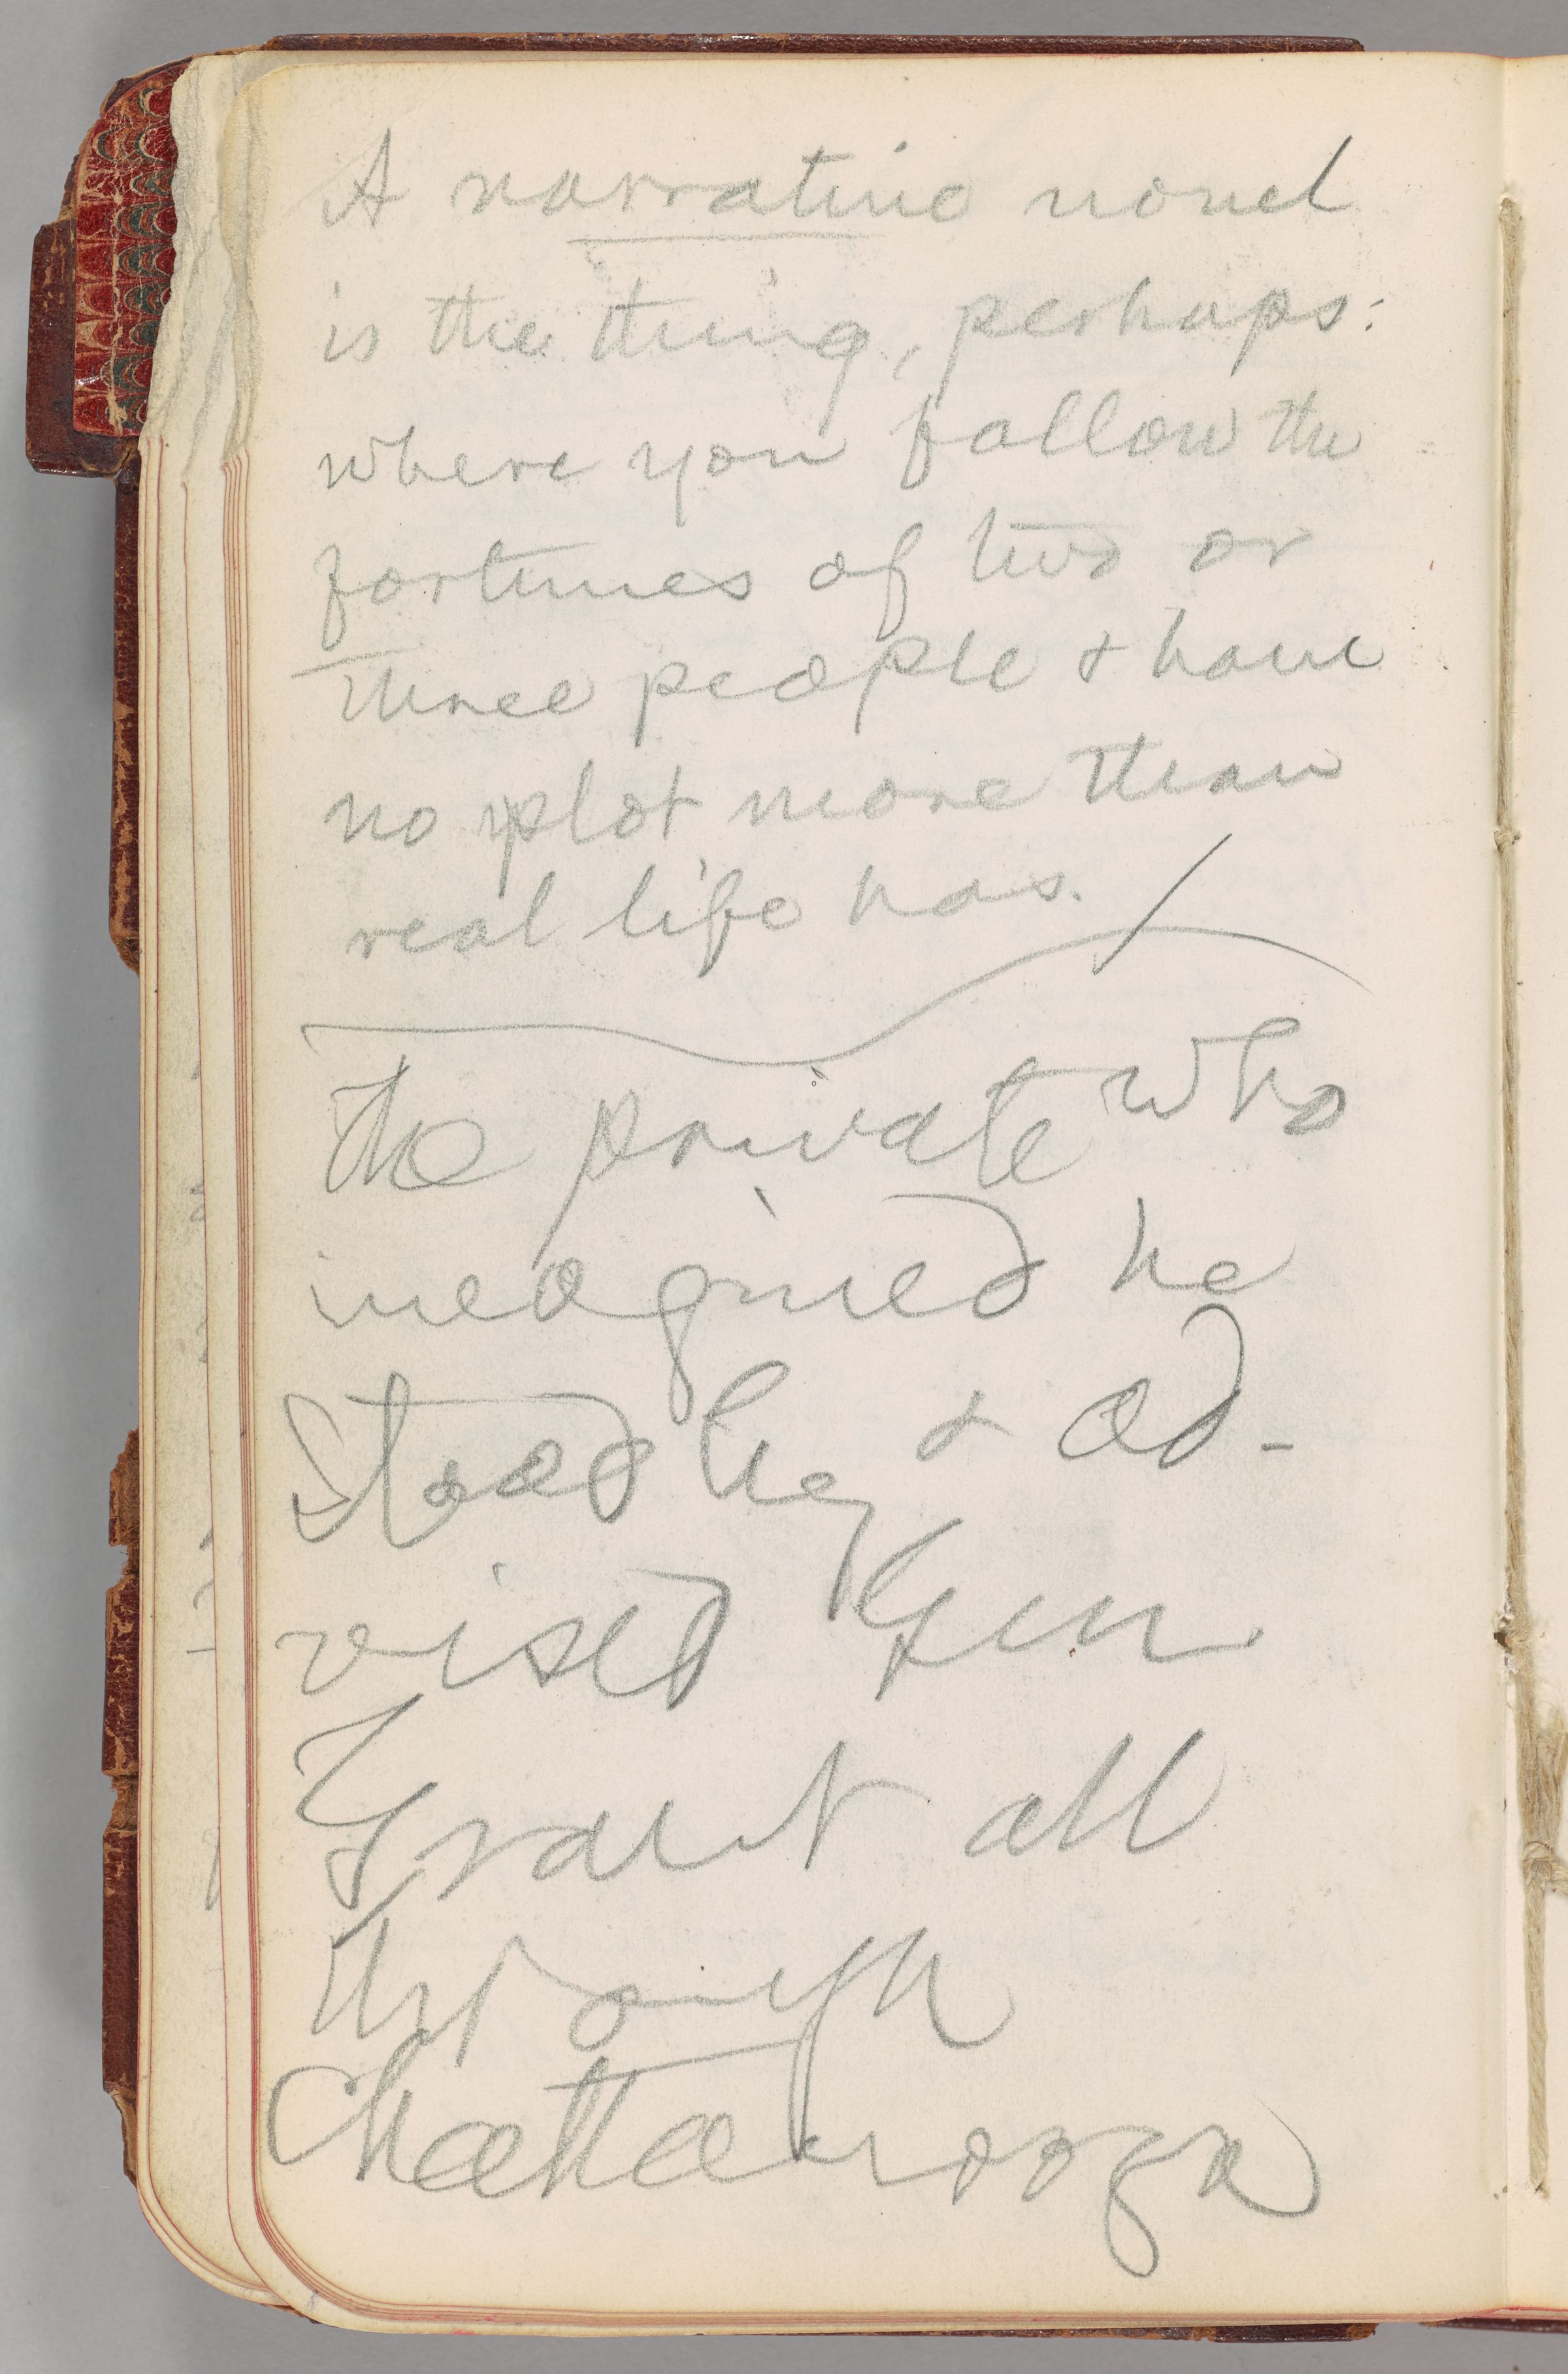 A narrative novel
is the thing, perhaps:
where you follow the
fortunes of two or
three people & have
no plot more than
real life has.
The private who
imagined he
stood by & ad-
vised Gen
Grant all
through
Chattanooga